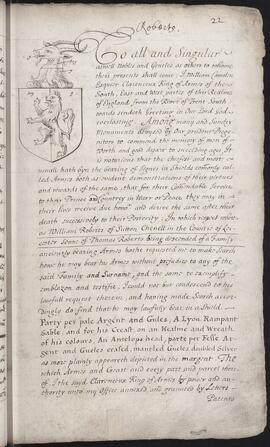 22
Roberts.
To all and Singular
aswell Nobles and Gentles as others to whome
these presents shall come: I William Camden
Esquier Clarenceux King of Armes of the
South, East and West partes of this Realme
of England, from the River of Trent South
wards sendeth Greeting in our Lord God
everlasting. Among many and Sundry
Monuments devised by our prudent Proge
nitors to commend the memory of men of
Worth and good desert to succeeding ages It
is notorious that the chiefest and most
usuall hath byn the bearing of signes in Shields commonly cal
led Armes both as evident demonstrations of their vertues
and rewards of the same that for their Comendable Service
to their Prince or Country in Warr or Peace they may in
their lives receive due hono and derive the same after their
death successively to their Posterity: In which respect where
as William Roberts of Sutton Chenell in the County of Lei
cester Sonne of Thomas Roberts being descended of a Family
anciently bearing Armes hathe requested me to make Search
how he may bear his Armes without prejudice to any of the
said Family and Surname, and the same to exemplify
emblazon and testifie; I would not but condescend to his
lawfull request therein, and having made Search accor
dingly do find that he may lawfully beare in a Sheild
Party per pale Argent and Gules, A Lyon Rampant
Sable. and for his Creast, on an Healme and Wreath
of his colours, An Antelops head, parte per Fesse Ar
gent and Gules erased, mantled Gules doubled Silver
as more plainly appeareth depicted in the margent. The
which Armes and Creast and every part and parcel there
of I the said Clarenceux King of Armes by power and au
thority unto my Office annexed and graunted by Letters
Patents